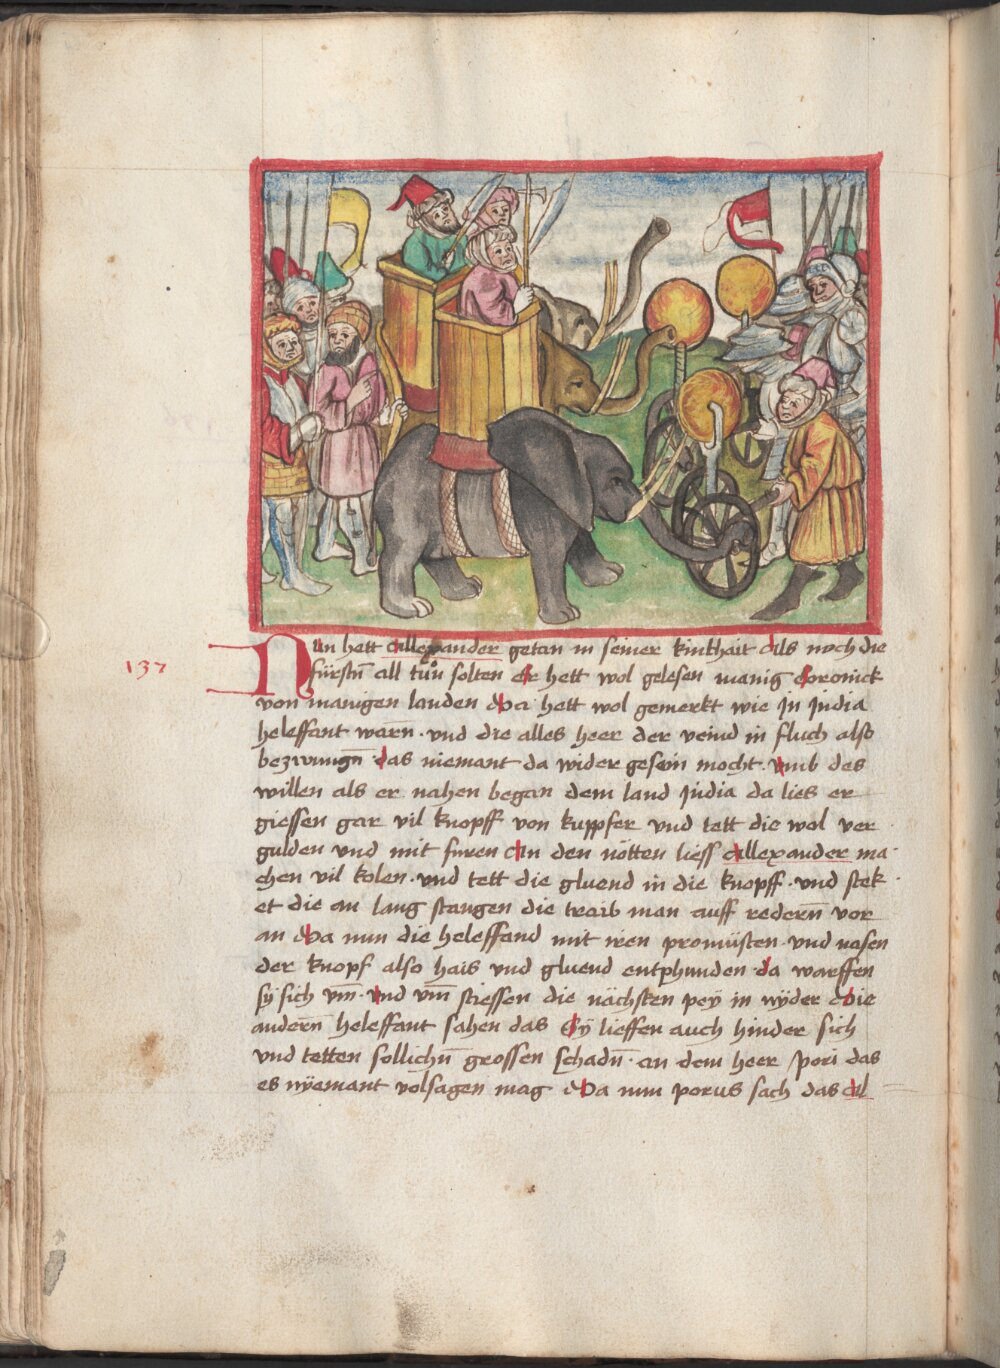 Nun hett allexander getan in seiner kinthait als noch die
137
fürstn̄ all tůn solten Er hett wol gelesen manig Coronick
von manigen landen Da hett wol gemerkt wie jn jndia
heleffant warn̄ · vnd die alles heer der veind in fluch also
bezwungn̄ das niemant da wider gesein mocht · vmb des
willen als er nahen began dem land jndia da lies er
giessen gar vil knopff von kuppfer vnd tett die wol ver
gulden vnd mit furen An den nötten liess Allexander ma
chen vil kolen · vnd tett die gluend in die knopff · vnd stek
et die an lang stangen die traib man auff redern̄ vor
an Da nun die heleffand mit iren promüsten · vnd nasen
der knopf also hais vnd gluend entphunden · da warffen
sy sich vm̄ · vnd vm̄ stiessen die nächsten pey in wyder Die
andern̄ heleffant sahen das Sÿ lieffen auch hinder sich
vnd tetten sollichn̄ grossen schadn̄ · an dem heer pori das
es nÿemant volsagen mag Da nun porus sach das al